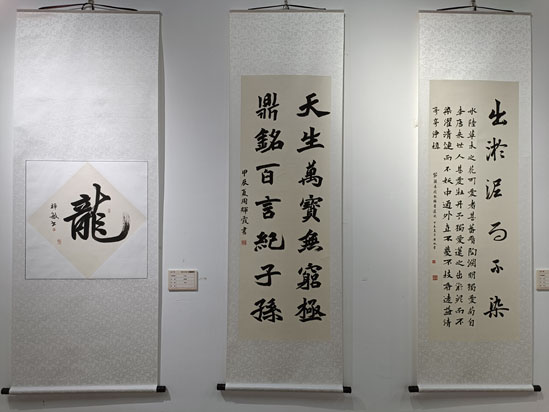 龍
天生萬寶無窮極
鼎銘百言紀子孫
甲辰夏周輝霞書
出淤泥而不染
水陸草木之花可愛者甚蕃晉陶淵明獨愛菊自
李唐來世人甚愛牡丹予獨愛蓮之出淤泥而不
染濯清漣而不妖中通外直不蔓不枝香遠益清
亭亭淨植